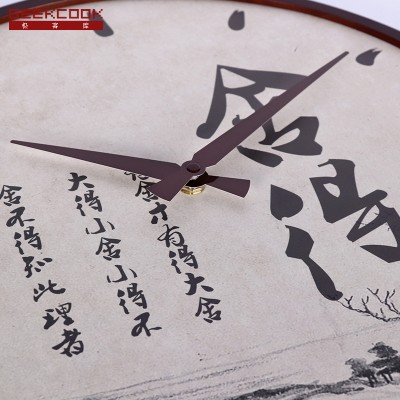 GEEKCOOK
极客库
舍得
舍才有得大舍
大得小舍小得不
舍不得知此理者